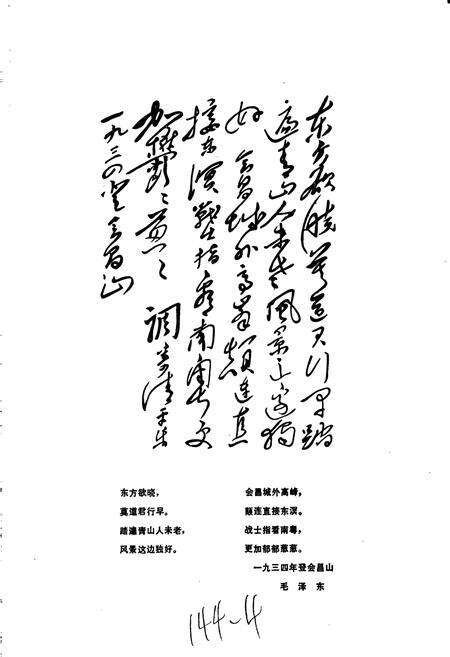 东方欲晓莫道君行早踏
遍青山人未老风景这边独
好 会昌城外高峰颠连直
接东溟战士指看南粤更
加鬱々葱々 调寄清平乐
一九三四登会昌山
东方欲晓，
莫道君行早。
踏遍青山人未老，
风景这边独好。
会昌城外高峰，
颠连直接东溟。
战士指看南粤，
更加郁郁葱葱。
一九三四年登会昌山
毛泽东
144-4